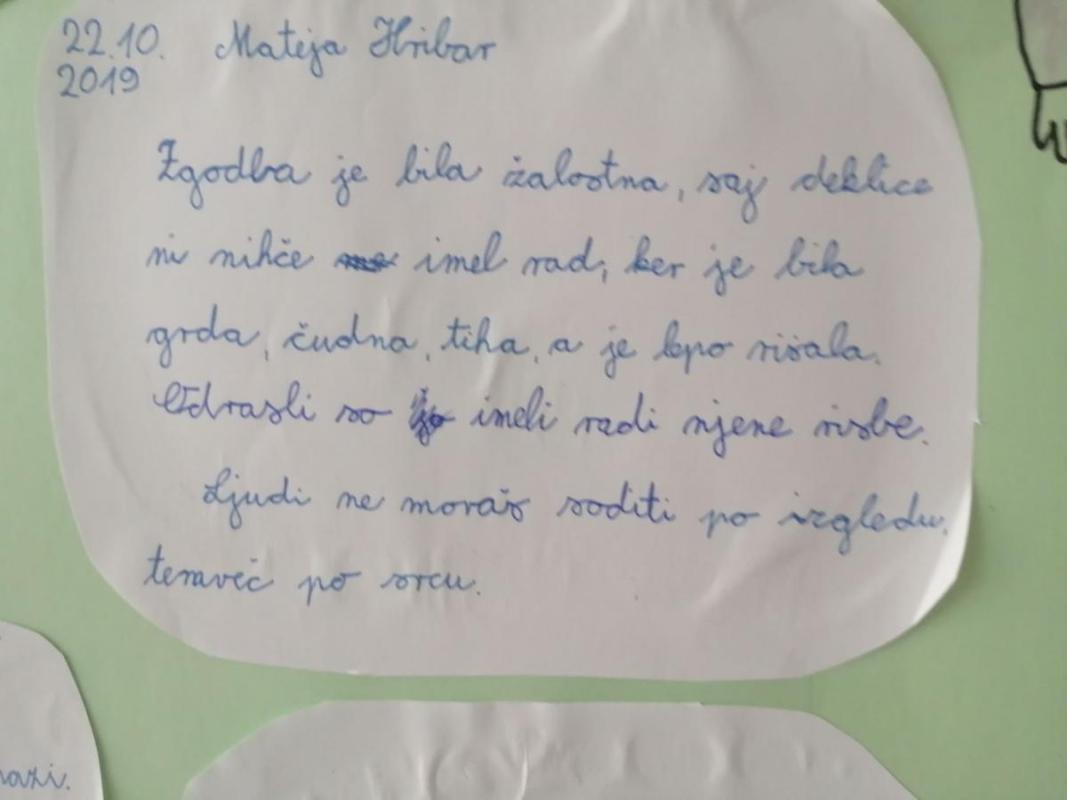 22.10. Mateja Hribar
2019
Zgodba je bila žalostna, saj deklice
ni nihče imel rad, ker je bila
grda, čudna, tiha, a je lepo risala.
Odrasli so imeli radi njene risbe.
Ljudi ne moraš soditi po izgledu,
temveč po srcu.